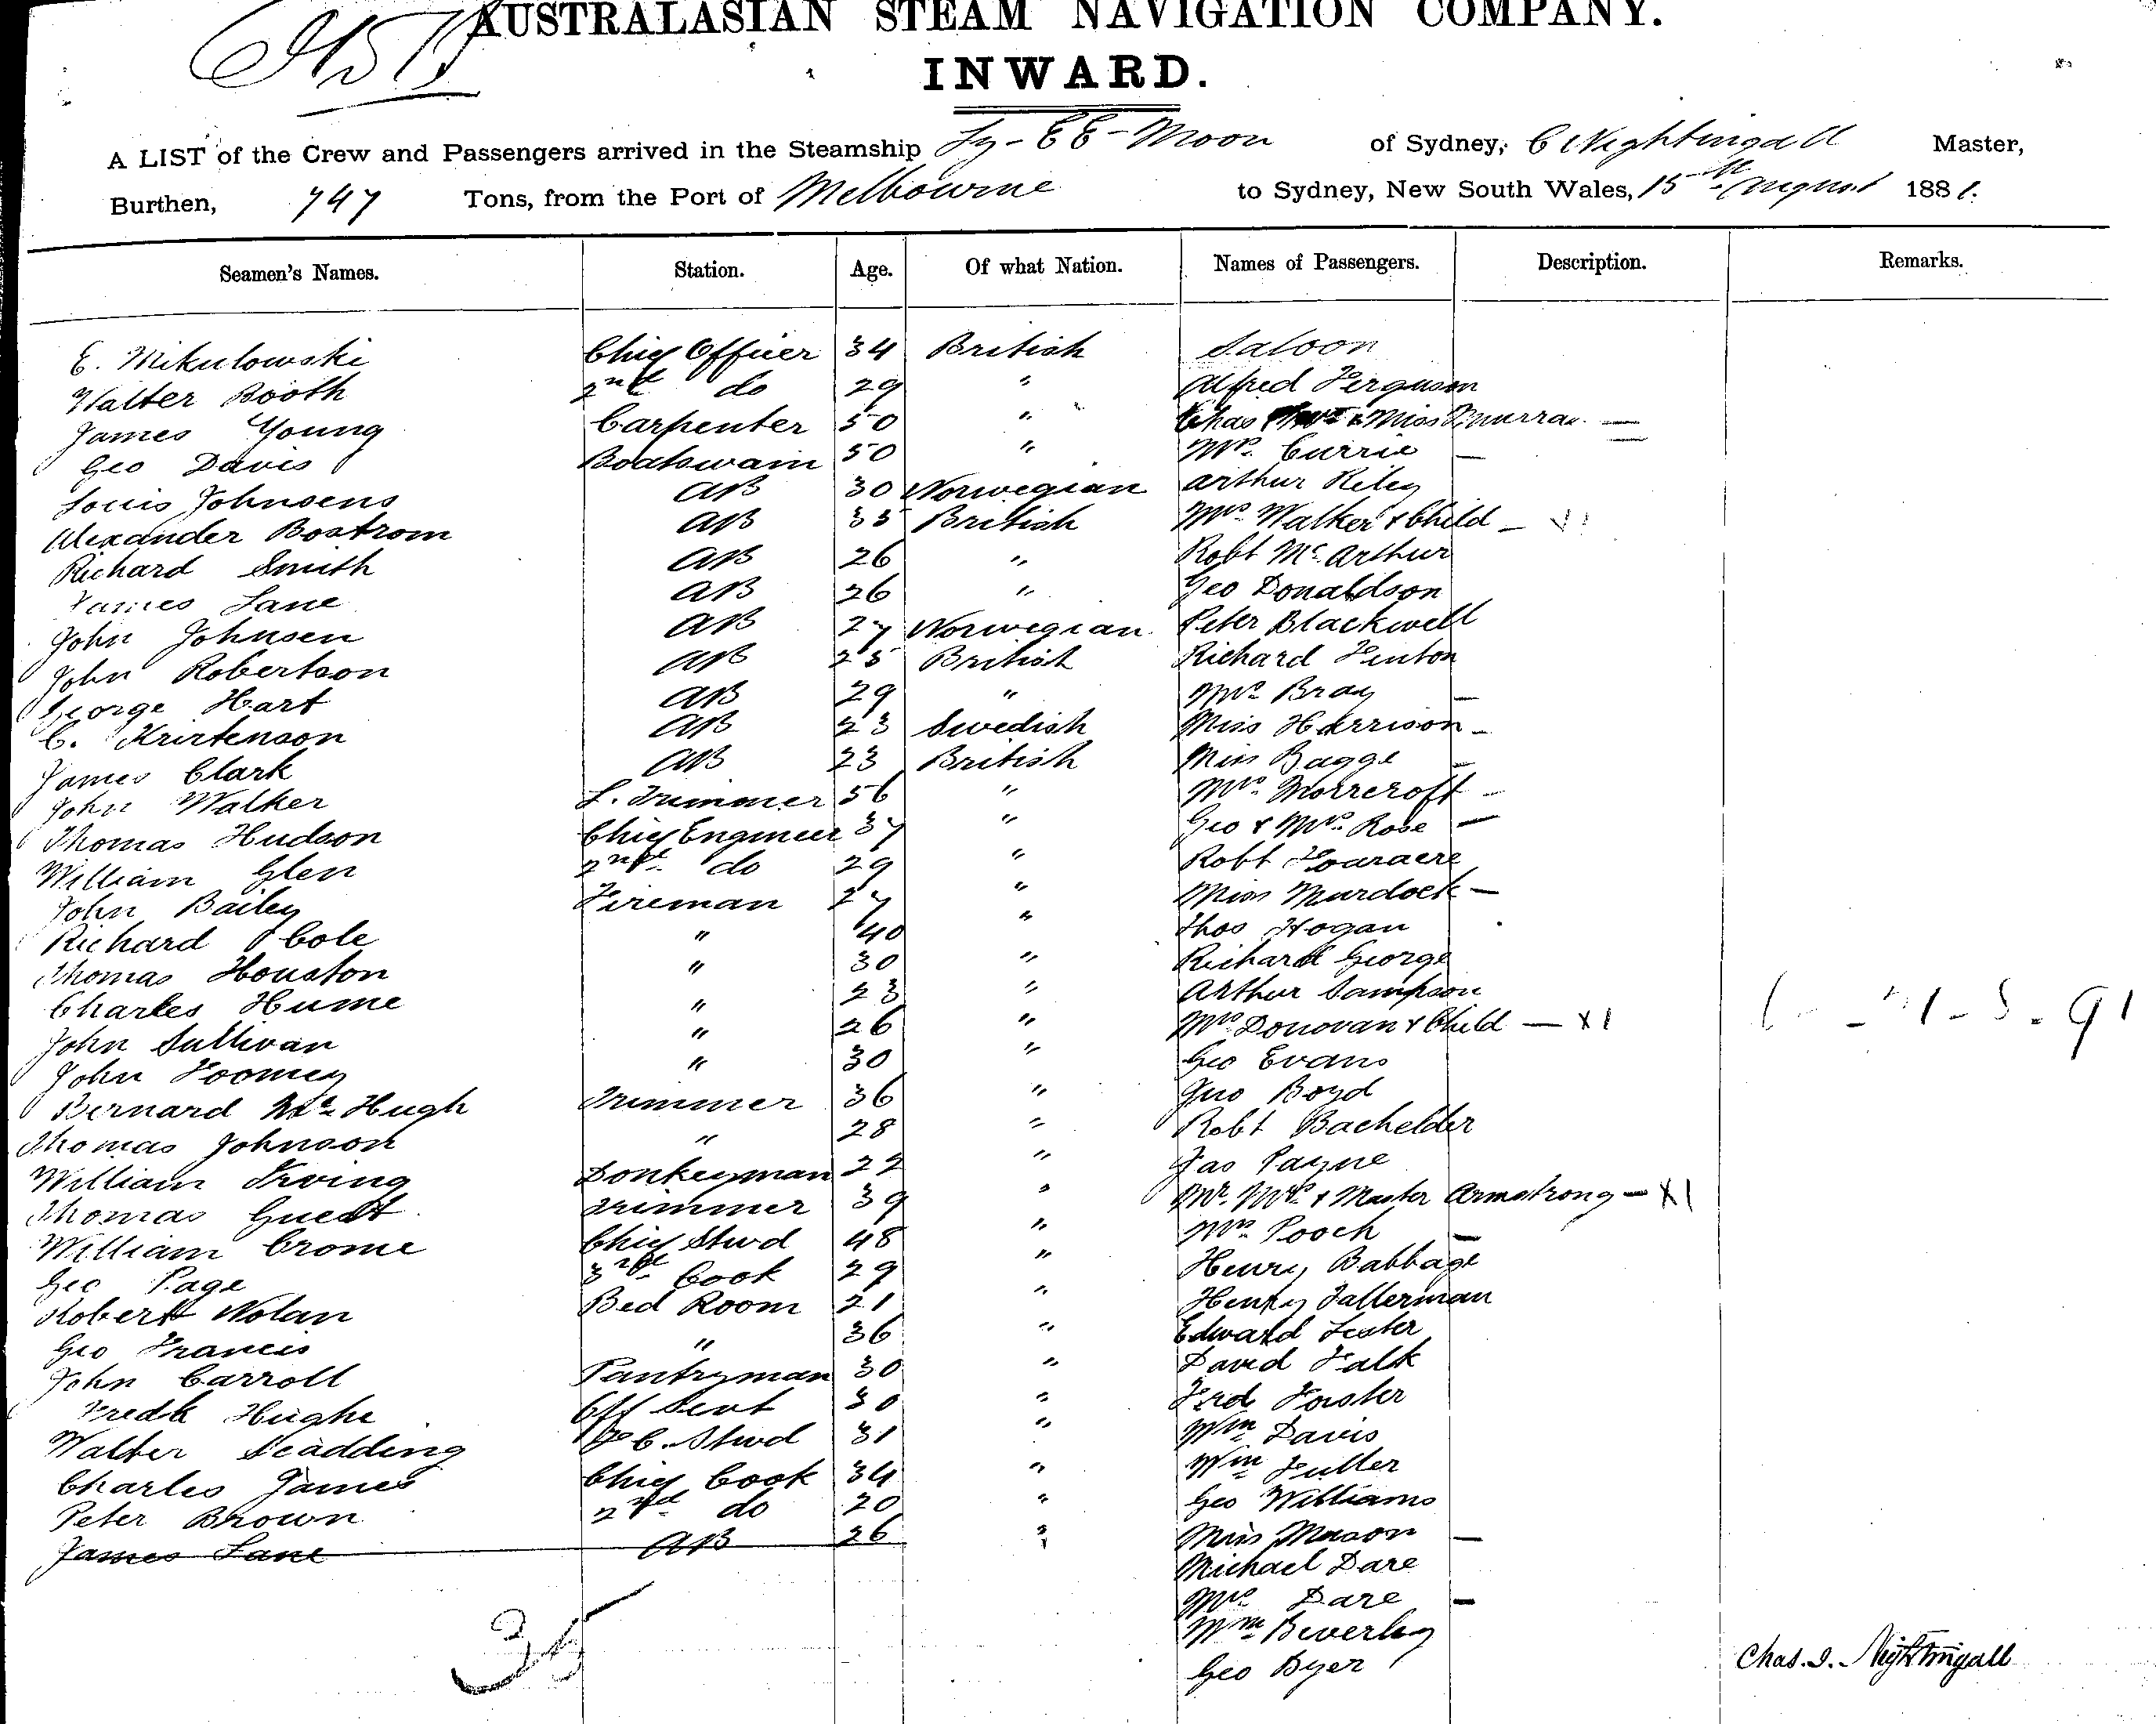 AUSTRALASIAN STEAM NAVIGATION COMPANY.
INWARD.
A LIST of the Crew and Passengers arrived in the Steamship Ly-EE-Moon of Sydney, C Nightingall Master,
Burthen, 747 Tons, from the Port of Melbourne to Sydney, New South Wales, 15th August 1881.
Seamen's Names. Station. Age. Of what Nation. Names of Passengers. Description. Remarks.
E. Mikulowski Chief Officer 34 British Saloon
Walter Booth 2nd do 29 " Alfred Ferguson
James Young Carpenter 50 " Chas & Miss Murray —
Geo Davis Boatswain 50 " Mrs. Currie —
Louis Johnsens AB 30 Norwegian Arthur Riley
Alexander Bostrom AB 35 British Mrs. Walker & Child —
Richard Smith AB 26 " Robt McArthur
James Lane AB 26 " Geo Donaldson
John Johnsen AB 27 Norwegian Peter Blackwell
John Robertson AB 25 British Richard Fenton
George Hart AB 29 " Mrs. Bray —
C. Kristenson AB 23 Swedish Miss Harrison —
James Clark AB 23 British Miss Bagge —
John Walker L. Trimmer 56 " Mrs. Morrcroft —
Thomas Hudson Chief Engineer 37 " Geo & Mrs. Rose —
William Glen 2nd do 29 " Robt Fouracre
John Bailey Fireman 27 " Miss Murdock —
Richard Cole " 40 " Thos Hogan
Thomas Houston " 30 " Richard George
Charles Hume " 23 " Arthur Sampson
John Sullivan " 26 " Mrs Donovan & Child — X1
John Toomey " 30 " Geo Evans
Bernard McHugh Trimmer 36 " Jno Boyd
Thomas Johnson " 28 " Robt Bachelder
William Irving Donkeyman 22 " Jas Payne
Thomas Guest Trimmer 39 " Mr. Mrs. & Master Armstrong — X1
William Crome Chief Stwd 48 " Mrs Pooch —
Geo Page 3rd Cook 29 " Henry Babbage
Robert Nolan Bed Room 21 " Henry Tallerman
Geo Francis " 36 " Edward Lester
John Carroll Pantryman 30 " David Falk
Fredk Hughes Off Servt 30 " Fred Forster
Walter Scadding F.C. Stwd 31 " Wm Davis
Charles James Chief Cook 34 " Wm Fuller
Peter Brown 2nd do 20 " Geo Williams
James Lane AB 26 " Miss Mason —
Michael Dare
Mrs. Dare —
Wm Beverley
Geo Byer
35
Chas. I. Nightingall